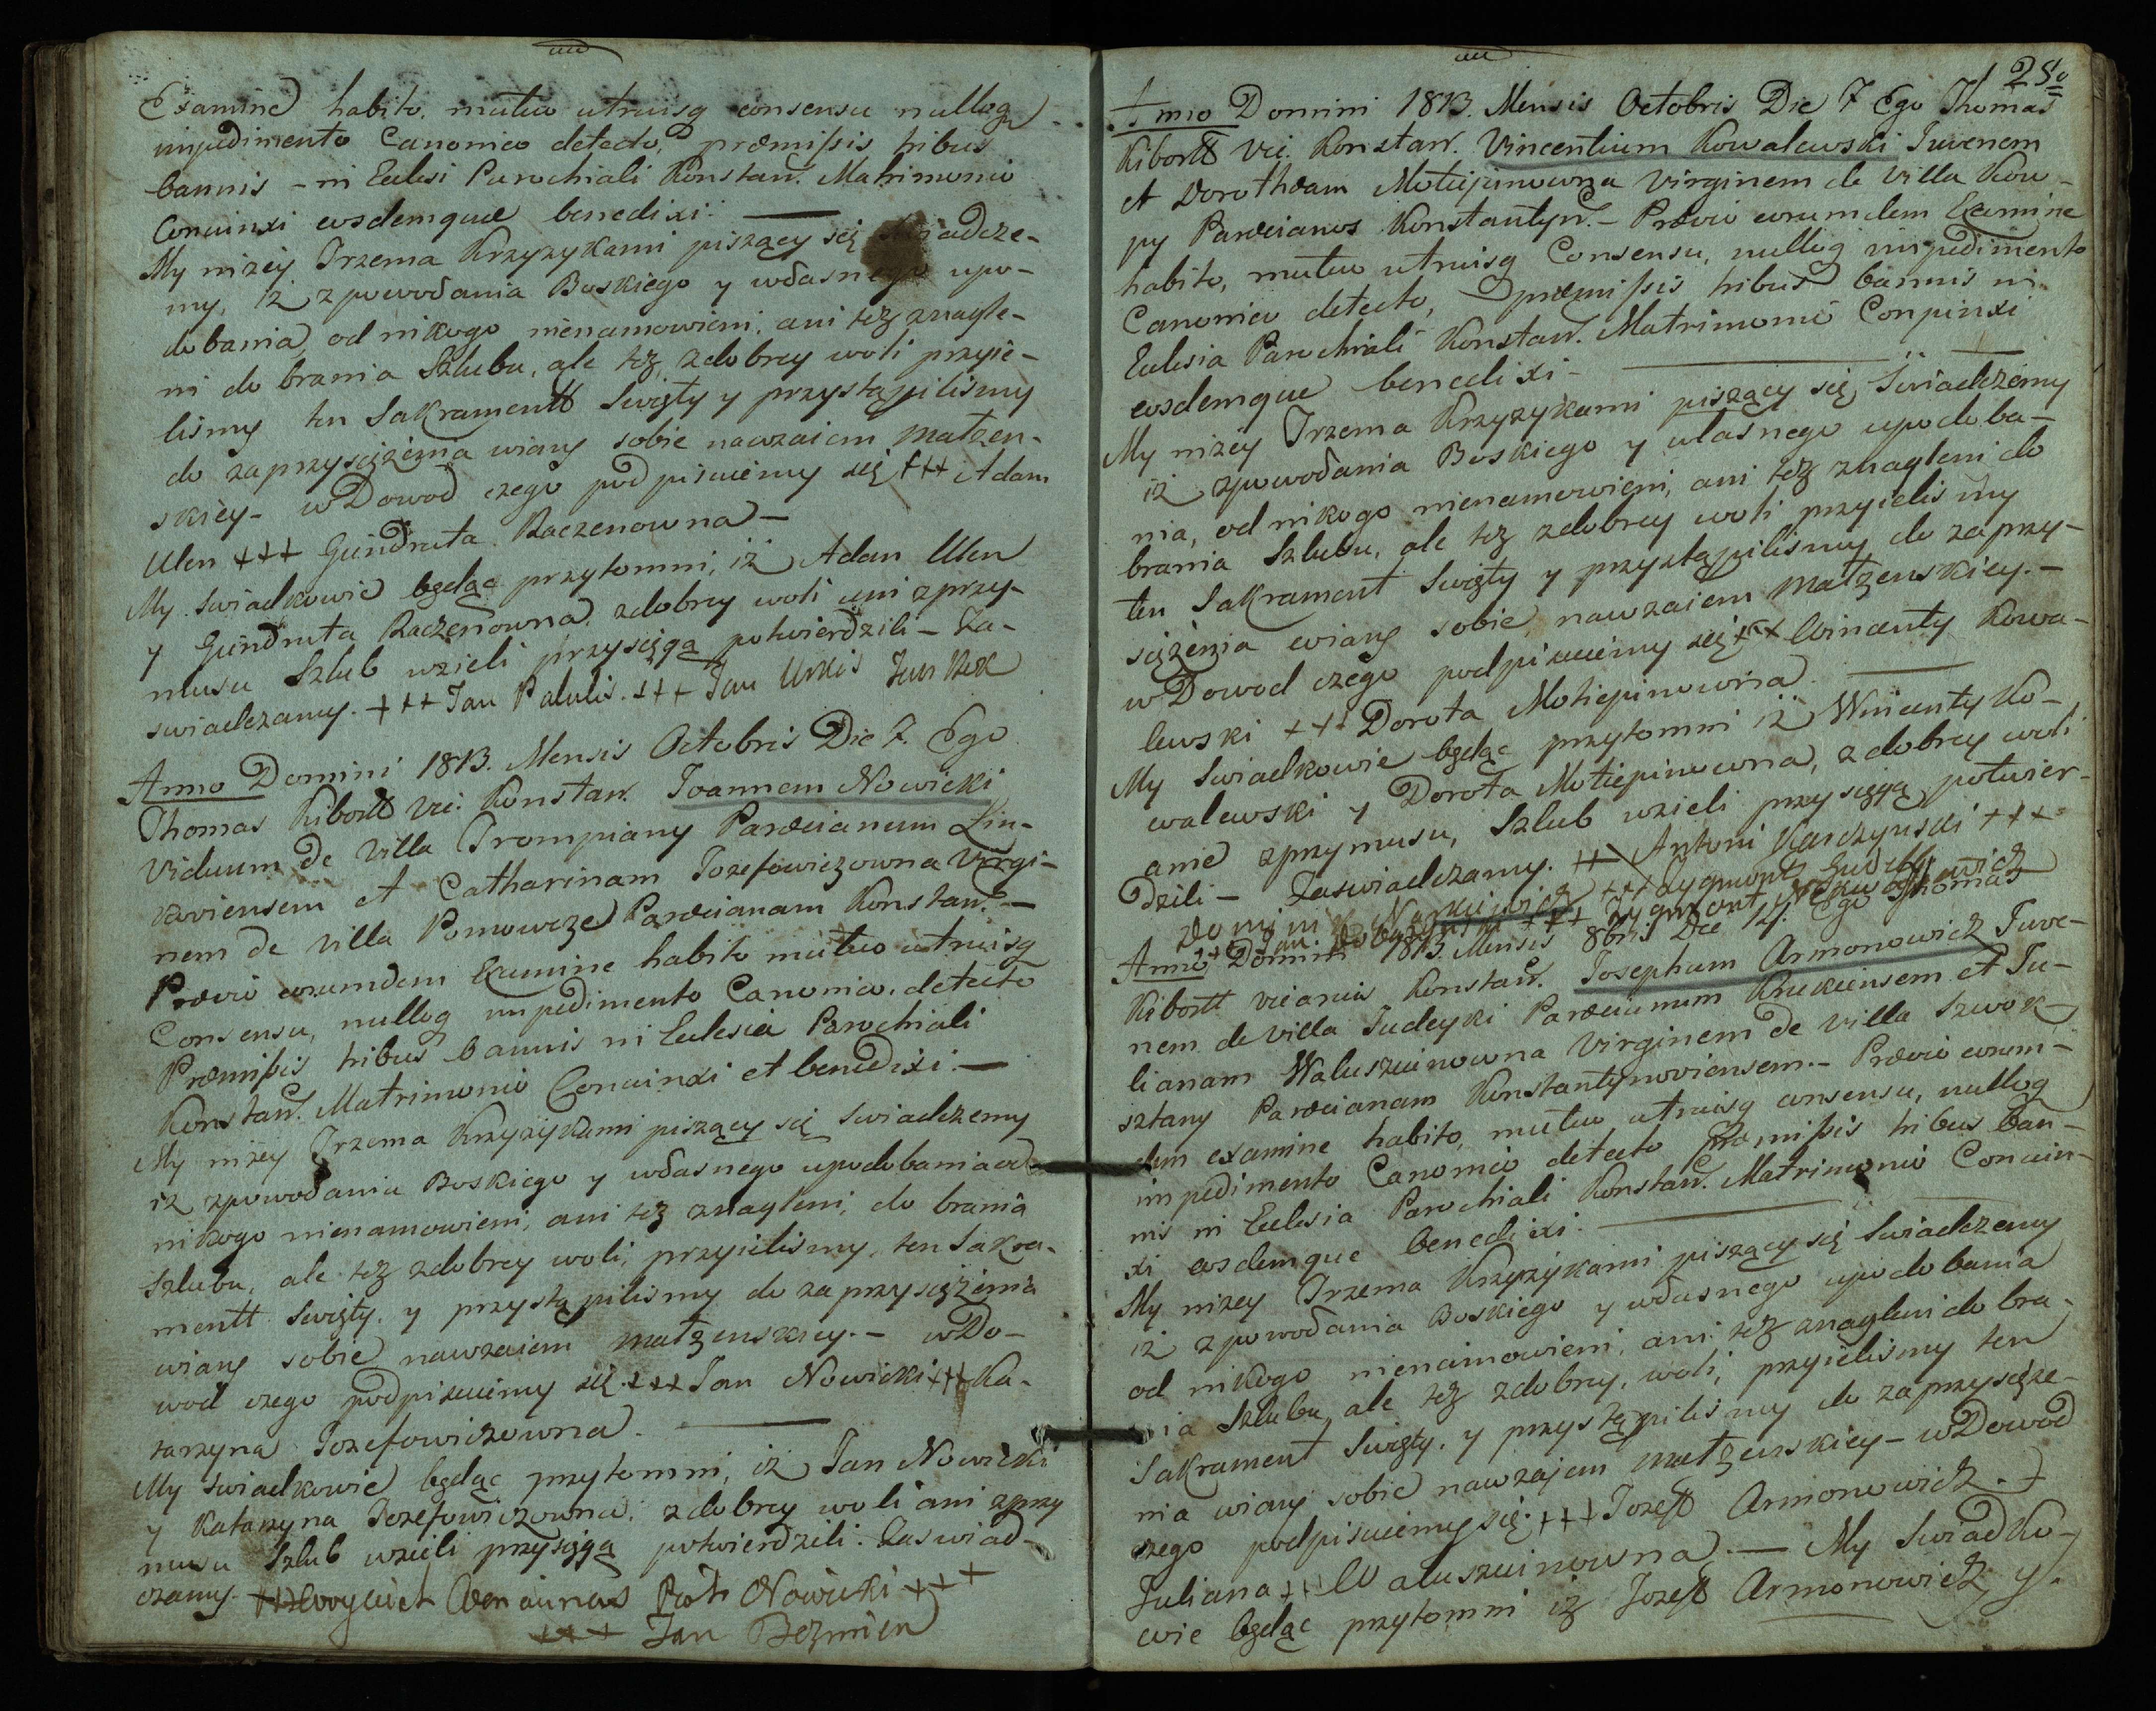 Examine habito, mutuo utruisq consensu nulloq
impedimento Canonico detecto, præmissis tribus
bannis - in Eulesi Parochiali Konstan. Matrimonio
Conuinxi eosdemque benedixi. —
My niżey Trzema Krzyzykami piszący się swiadcze-
my, iż zpowodania Boskiego y własnego upo-
dobania, od nikogo nienamowieni, ani też znagle-
ni do brania Szlubu, ale też zdobrey woli przyie-
lismy ten Sakramentt Swięty y przystąpilismy
do zaprzysiężenia wiary sobie nawzaiem małzen-
skiey - wDowod czego podpisuiemy się +++ Adam
Ulen +++ Gundruta Raczenowna -
My swiadkowie będąc przytomni, iż Adam Ulen
y Gundruta Raczenowna zdobrey woli ani zprzy-
musu Szlub wzieli przysięgą potwierdzili - Za-
swiadczamy. +++ Jan Palulis. +++ Jan Urkis
Anno Domini 1813. Mensis Octobris Die 7. Ego
Thomas Kibortt Vic: Konstan. Joannem Nowicki
Viduum de Villa Trompiany Parœcianum Lin-
koviensem et Catharinam Jozefowiczowna Virgi-
nem de Villa Pomowcze Parœcianam Konstan. -
Prævio eorumdem Examine habito mutuo utruisq
Consensu, nulloq impedimento Canonico detecto
Præmissis tribus bannis in Eulesia Parochiali
Konstan. Matrimonio Conuinxi et benedixi. —
My niżey Trzema Krzyzykami piszący się Swiadczemy
iz zpowodania Boskiego y własnego upodobania od
nikogo nienamowieni, ani też znagleni, do brania
Szlubu, ale też zdobrey woli, przyielismy, ten Sakra-
mentt Swięty. y przystąpilismy do zaprzysiężenia
wiary sobie nawzaiem małzenskiey. - wDo-
wod czego podpisuiemy się +++ Jan Nowicki +++ Ka-
tarzyna Jozefowiczowna. —
My swiadkowie będąc przytomni, iż Jan Nowicki
y Katarzyna Jozefowiczowna. zdobrey woli ani zprzy
musu Szlub wzieli przysięgą potwierdzili. Zaswiad-
czamy. +++ Piotr Nowicki +++
+++ Jan Bezmien
250
Anno Domini 1813. Mensis Octobris Die 7 Ego Thomas
Kibortt Vic. Konstan. Vincentium Kowalewski Juvenem
et Dorotheam Motiepinowna Virginem de Villa Kow-
py Parœcianos Konstantyn. - Prævio eorumdem Examine
habito, mutuo utruisq Consensu, nulloq impedimento
Canonico detecto, præmissis tribus bannis in
Eulesia Parochiali Konstan. Matrimonio Conpinxi
eosdemque benedixi - —
My niżey Trzema Krzyzykami piszący się, Swiadczemy
iż zpowodania Boskiego y własnego upodoba-
nia, od nikogo nienamowieni, ani też znagleni do
brania Szlubu, ale też zdobrey woli przyielismy
ten Sakrament Swięty y przystąpilismy do zaprzy-
siężenia wiary sobie nawzaiem małzenskiey. -
wDowod czego podpisuiemy się +++ Wincenty Kowa-
lewski +++ Dorota Motiepinowna —
My Swiadkowie będąc przytomni iż Wincenty Ko-
walewski y Dorota Motiepinowna, zdobrey woli
anie zprzymusu, Szlub wzieli przysięgą potwier-
dzili - Zaswiadczamy. ++ Antoni Karczynski +++
Dominik Narkiewicz +++ Zygmont
Jan +++ Zygmont
Anno Domini 1813 Mensis 8bris Die 14. Ego Thomas
Kibortt vicarius Konstan. Josephum Armonowicz Juve-
nem de Villa Judeyki Parœcianum Krukiensem et Ju-
lianam Waluszuinowna Virginem de Villa Szwok-
sztany Parœcianam Konstantynoviensem. - Prævio eorum-
dem examine habito, mutuo utruisq consensu, nulloq
impedimento Canonico detecto Præmissis tribus ban-
nis in Eulesia Parochiali Konstan. Matrimonio Conuin-
xi eosdemque benedixi. —
My niżey Trzema Krzyzykami piszący się Swiadczemy
iż zpowodania Boskiego y własnego upodobania
od nikogo nienamowieni, ani też znagleni do bra-
nia Szlubu, ale też zdobrey, woli, przyielismy ten
Sakrament Swięty. y przystąpilismy do zaprzysięże-
nia wiary sobie nawzajem małzenskiey - wDowod
czego podpisuiemy się. +++ Jozeff Armonowicz. +
Juliana ++ Waluszuinowna. — My Swiadko-
wie będąc przytomni iż Jozeff Armonowicz y.